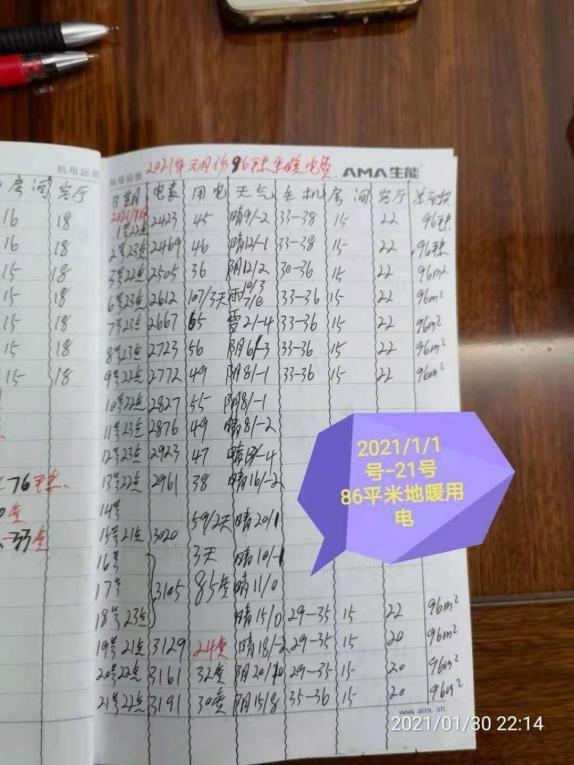 航裕品质
航裕品质
2021年元月份96平米地暖电费
AMA生能
房间 客厅
日期 电表 用电 天气 主机 房间 客厅
16 18
2021/1月
1号22点 2423 45 晴9/-2 33-38 15 22 96平米
16 18
2号23点 2469 46 晴12/-1 33-38 15 22 96平米
15 18
3号22点 2505 36 阴12/2 30-36 15 22 96m²
15 18
6号23点 2612 107/3天 雨 33-36 15 22 96m²
15 18
7号23点 2667 65 雪2/-4 33-36 15 22 96m²
15 18
8号23点 2723 56 阴6/-3 33-36 15 22 96m²
15 18
9号22点 2772 49 阴8/-1 33-36 15 22 96m²
10号22点 2827 55 阴8/-1
11号23点 2876 49 晴8/-2
12号23点 2923 47 晴 /-4
13号22点 2961 38 晴16/-2
14号
15号21点 3020 59/2天 晴20/1
16号 3天 晴10/-1
17号 3105 85度 晴11/0
18号23点 晴15/0 29-35 15 22 96m²
19号21点 3129 24度 晴18/-2 29-35 15 20 96m²
20号22点 3161 32度 阴20/10 29-35 15 20 96m²
21号22点 3191 30度 阴15/8 35-36 15 20 96m²
76平米
www.ama.sh
2021/1/1
号-21号
86平米地暖用
电
2021/01/30 22:14